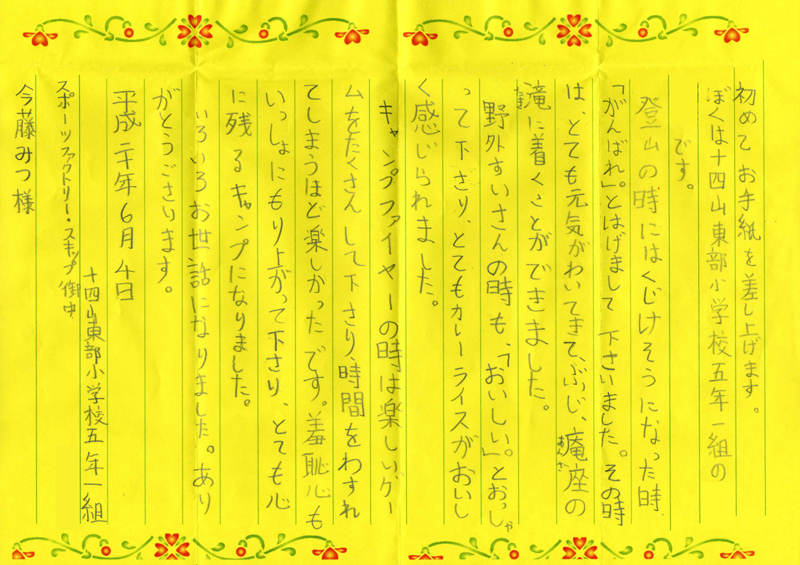 初めてお手紙を差し上げます。
ぼくは十四山東部小学校五年一組の
です。
登山の時にはくじけそうになった時
「がんばれ」。とはげまして下さいました。その時
は、とても元気がわいてきて、ぶじ、庵座の
あんざ
滝に着くことができました。
たき
野外すいさんの時も、「おいしい。」とおっしゃ
って下さり、とてもカレーライスがおいし
く感じられました。
キャンプファイヤーの時は楽しいゲー
ムをたくさんして下さり、時間をわすれ
てしまうほど楽しかったです。羞恥心も
いっしょにもり上がって下さり、とても心
に残るキャンプになりました。
いろいろお世話になりました。あり
がとうございます。
平成二十年6月4日
十四山東部小学校五年一組
スポーツファクトリー・スキップ御中
今藤みつ様